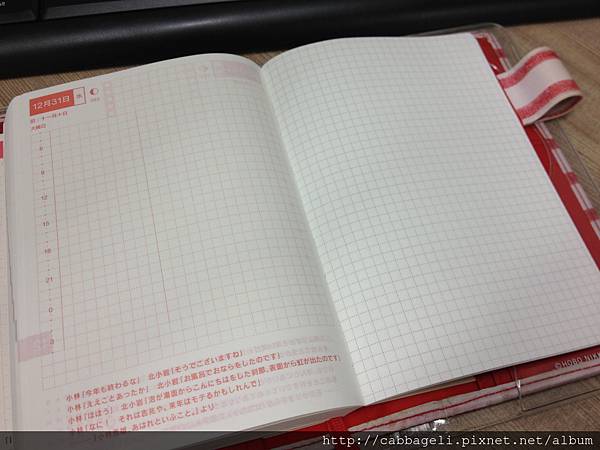 12月31日
水
大晦日
6
9
12
15
18
21
0
3
小林「今年も終わるな」 北小岩「そうでございますね」
小林「ええことあったか」 北小岩「お風呂でおならをしたのです」
小林「ほほう」 北小岩「泡が湯面からこんにちはをした刹那、表面から虹が出たのです」
小林「なに! それは吉兆や。来年はモテるかもしれんで」
あはれといふこと。』より
©HOBO NIK
http://cabbageli.pixnet.net/album